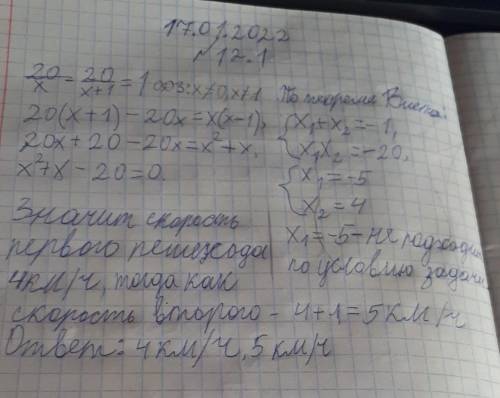 17.01.2022
№ 12.1
20/x = 20/x+1 = 1 ОДЗ: x≠0, x≠1
20(x+1) - 20x = x(x-1),
20x + 20 - 20x = x² + x,
x² + x - 20 = 0.
По теореме Виета:
{x₁+x₂ = -1,
x₁x₂ = -20,
{x₁ = -5
x₂ = 4
x₁ = -5 - не подходит
по условию задачи
Значит скорость
первого пешехода
4км/ч, тогда как
скорость второго - 4+1=5км/ч
Ответ: 4км/ч, 5км/ч